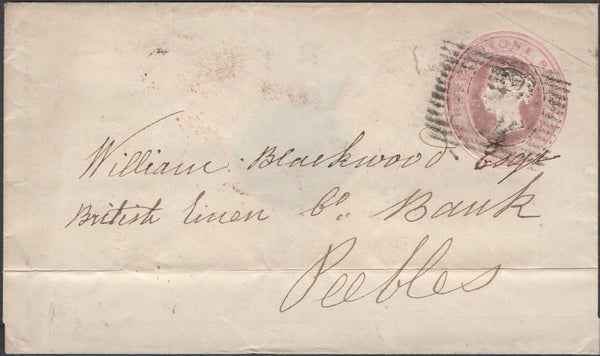 ONE
William Blackwood Esqr
British Linen Co. Bank
Peebles